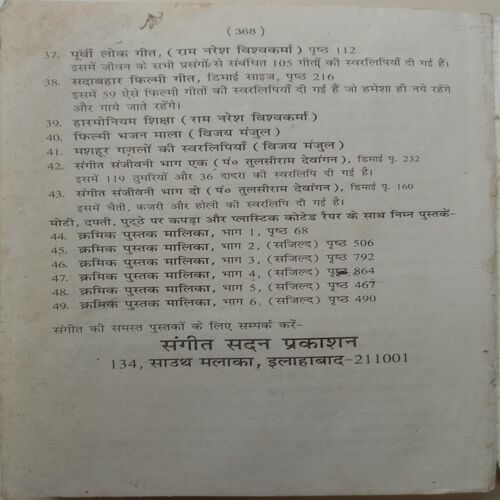 ( 368 )
37. पूर्वी लोक गीत, ( राम नरेश विश्वकर्मा ) पृष्ठ 112
इसमें जीवन के सभी प्रसंगों से संबंधित 105 गीतों की स्वरलिपियाँ दी गई हैं।
38. सदाबहार फिल्मी गीत, डिमाई साइज, पृष्ठ 216
इसमें 59 ऐसे फिल्मी गीतों की स्वरलिपियाँ दी गई हैं जो हमेशा ही नये रहेंगे
और गाये जाते रहेंगे।
39. हारमोनियम शिक्षा ( राम नरेश विश्वकर्मा )
40. फिल्मी भजन माला ( विजय मंजुल )
41. मशहूर गज़लों की स्वरलिपियाँ ( विजय मंजुल )
42. संगीत संजीवनी भाग एक ( पं० तुलसीराम देवांगन ), डिमाई पृ. 232
इसमें 119 ठुमरियों और 36 दादरा की स्वरलिपि दी गई है।
43. संगीत संजीवनी भाग दो ( पं० तुलसीराम देवांगन ), डिमाई पृ. 160
इसमें चैती, कजरी और होली की स्वरलिपि दी गई है।
मोटी, दफ्ती, पुट्ठे पर कपड़ा और प्लास्टिक कोटेड रैपर के साथ निम्न पुस्तकें-
44. क्रमिक पुस्तक मालिका, भाग 1, पृष्ठ 68
45. क्रमिक पुस्तक मालिका, भाग 2, (सजिल्द) पृष्ठ 506
46. क्रमिक पुस्तक मालिका, भाग 3, (सजिल्द) पृष्ठ 792
47. क्रमिक पुस्तक मालिका, भाग 4, (सजिल्द) पृष्ठ 864
48. क्रमिक पुस्तक मालिका, भाग 5, (सजिल्द) पृष्ठ 467
49. क्रमिक पुस्तक मालिका, भाग 6, (सजिल्द) पृष्ठ 490
संगीत की समस्त पुस्तकों के लिए सम्पर्क करें-
संगीत सदन प्रकाशन
134, साउथ मलाका, इलाहाबाद-211001